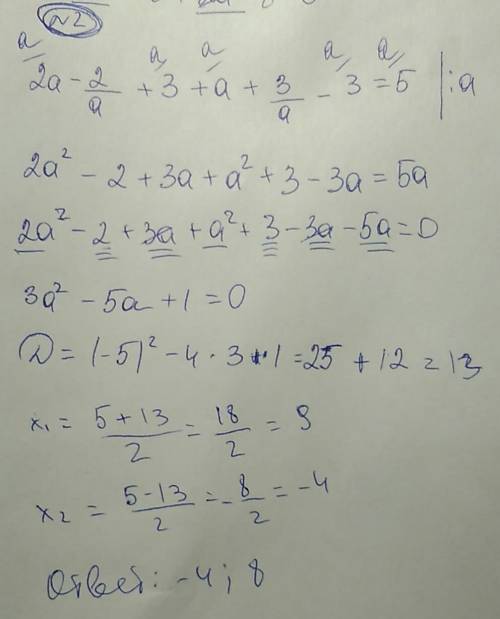 №2
a a a a a
2a - 2/a + 3 + a + 3/a - 3 = 5 | :a
2a² - 2 + 3a + a² + 3 - 3a = 5a
2a² - 2 + 3a + a² + 3 - 3a - 5a = 0
3a² - 5a + 1 = 0
D = (-5)² - 4 · 3 · 1 = 25 + 12 = 13
x₁ = (5 + 13)/2 = 18/2 = 9
x₂ = (5 - 13)/2 = -8/2 = -4
Ответ: -4; 8